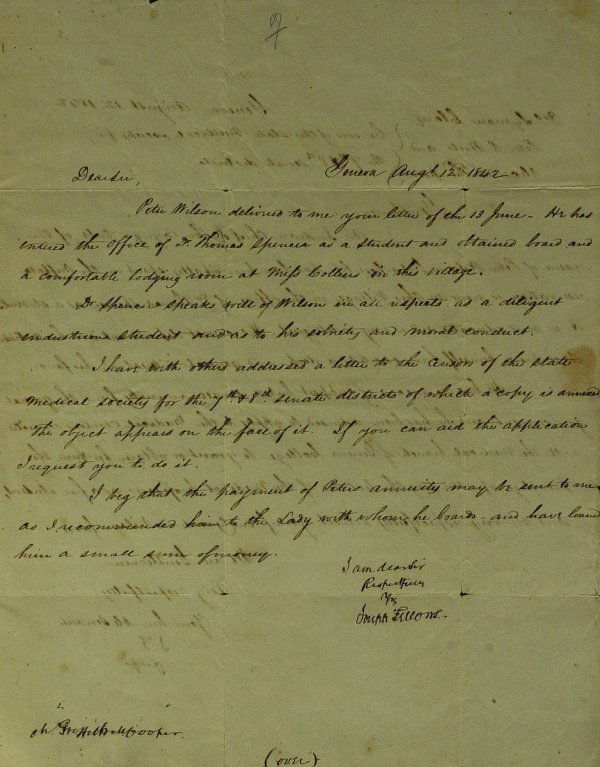 Geneva Augt 12. 1842
Dear Sir,
Peter Wilson delivered to me your letter of the 13 June - He has
entered the office of Dr Thomas Spencer as a student and obtained board and
a comfortable lodging room at Miss Colliers in this village.
Dr Spencer speaks well of Wilson in all respects as a diligent
industrious student and as to his sobriety and moral conduct.
I have with others addressed a letter to the Censors of the State
Medical society for the 7th & 8th senate districts of which a copy is annexed
The object appears on the face of it. If you can aid the application
I request you to do it.
I beg that the payment of Peters annuity may be sent to me
as I recommended him to the Lady with whom he boards - and have loaned
him a small sum of money.
I am dear Sir
Respectfully
Yrs
Joseph Fellows.
Griffith M Cooper.
(over)